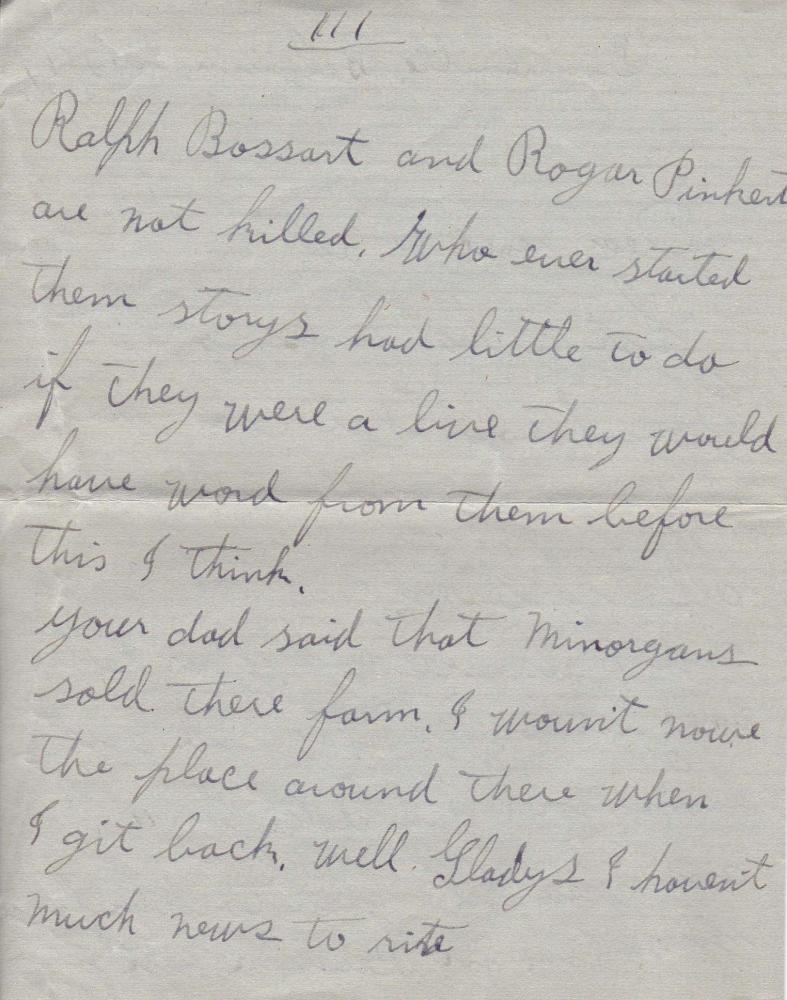 III
Ralph Bossart and Rogar Pinkert
are not killed. Who ever started
them storys had little to do
if they were a live they would
have word from them before
this I think.
your dad said that Minorgans
sold there farm. I wount nowe
the place around there when
I git back. well. Gladys I havent
much news to rite